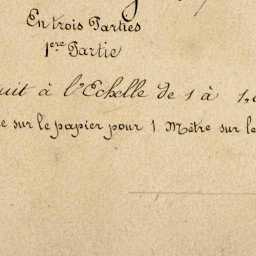 En trois Parties
1ere Partie
uit à l'Echelle de 1 à 1,
e sur le papier pour 1 Mètre sur le